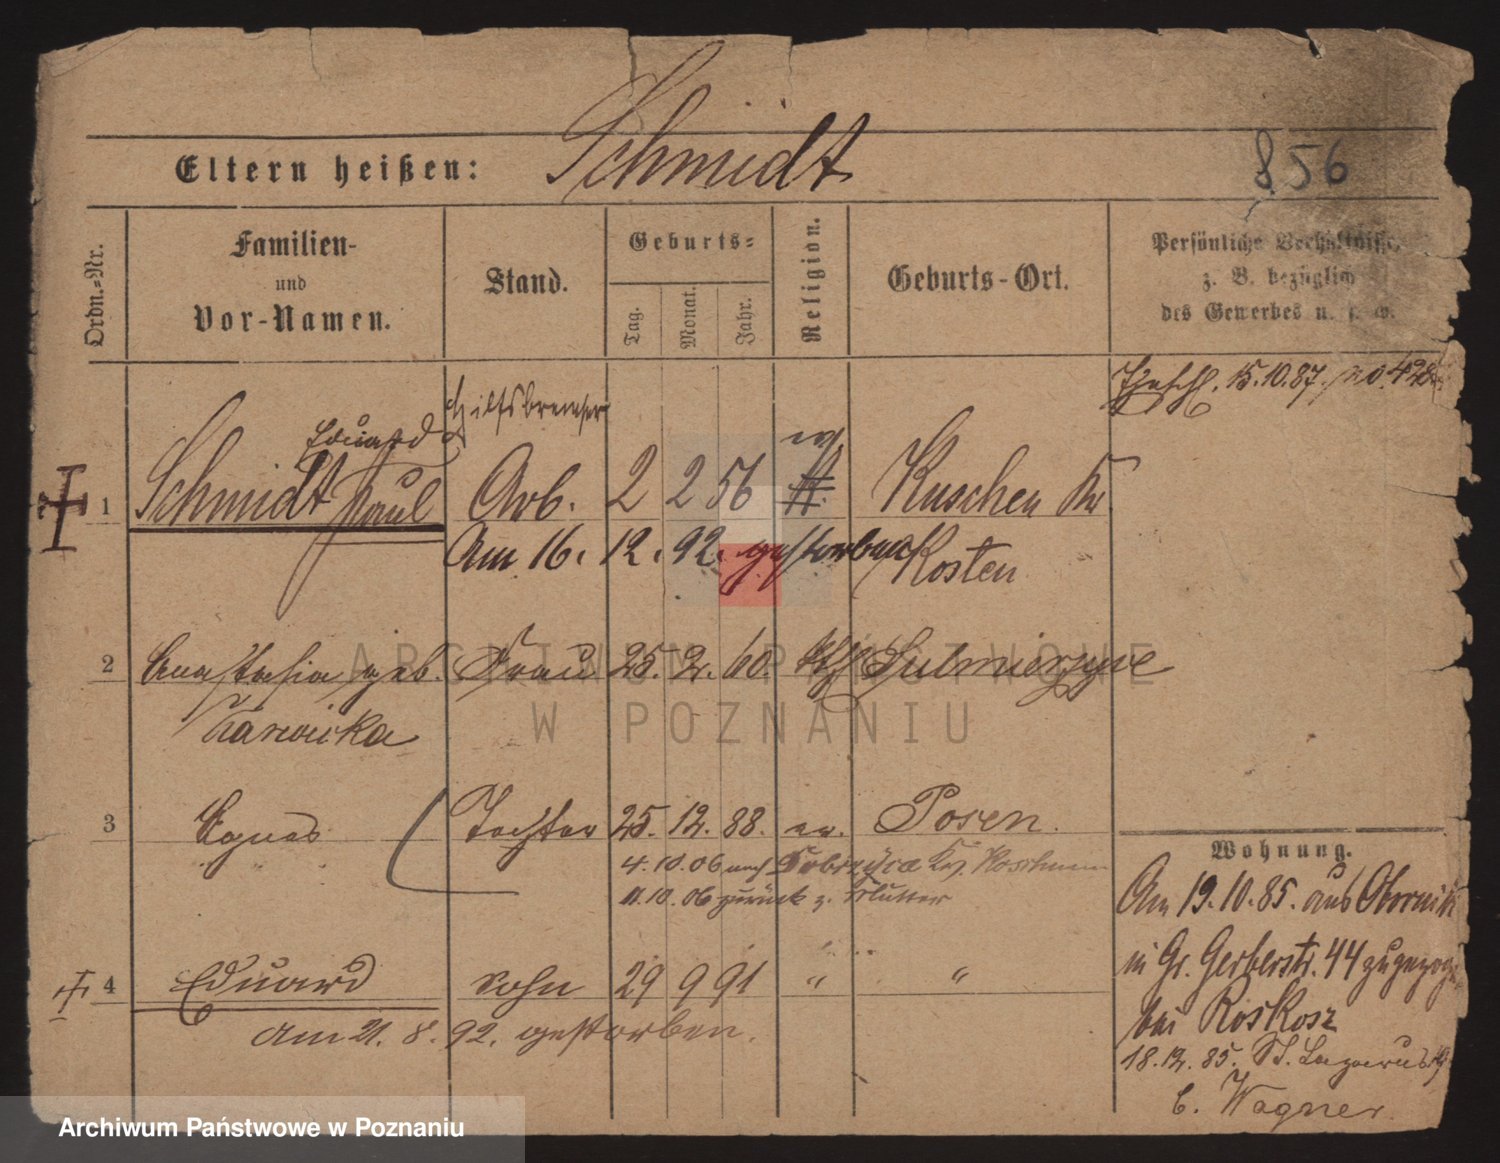 Schmidt
Eltern heißen:
856
Ordn.=Nr.
Familien-
und
Vor-Namen.
Stand.
Geburts=
Tag.
Monat.
Jahr.
Religion.
Geburts-Ort.
Persönliche Verhältnisse,
z. B. bezüglich
des Gewerbes u. s. w.
15.10.87. no 428
Hilfsbremser
Eduard
ev
1 Schmidt Paul Arb. 2 2 56 Kuschen Kr
Am 16. 12. 92. gestorben Kosten
2 Anastasia geb. Frau 25. 2. 60. kth Sulmierzyce
3 Agnes Tochter 25. 12. 88. ev. Posen.
4.10.06 nach Dobrzyca Kr. Koschmin
11.10.06 zurück z. Mutter
4 Eduard Sohn 29 9 91 " "
Am 21. 8. 92. gestorben.
Wohnung.
Am 19.10.85. aus Obornik
in Gr. Gerberstr. 44 zugezogen
bei Roskosz
18.12.85. St. Lazarus
b. Wagner.
ARCHIWUM PAŃSTWOWE
W POZNANIU
Archiwum Państwowe w Poznaniu